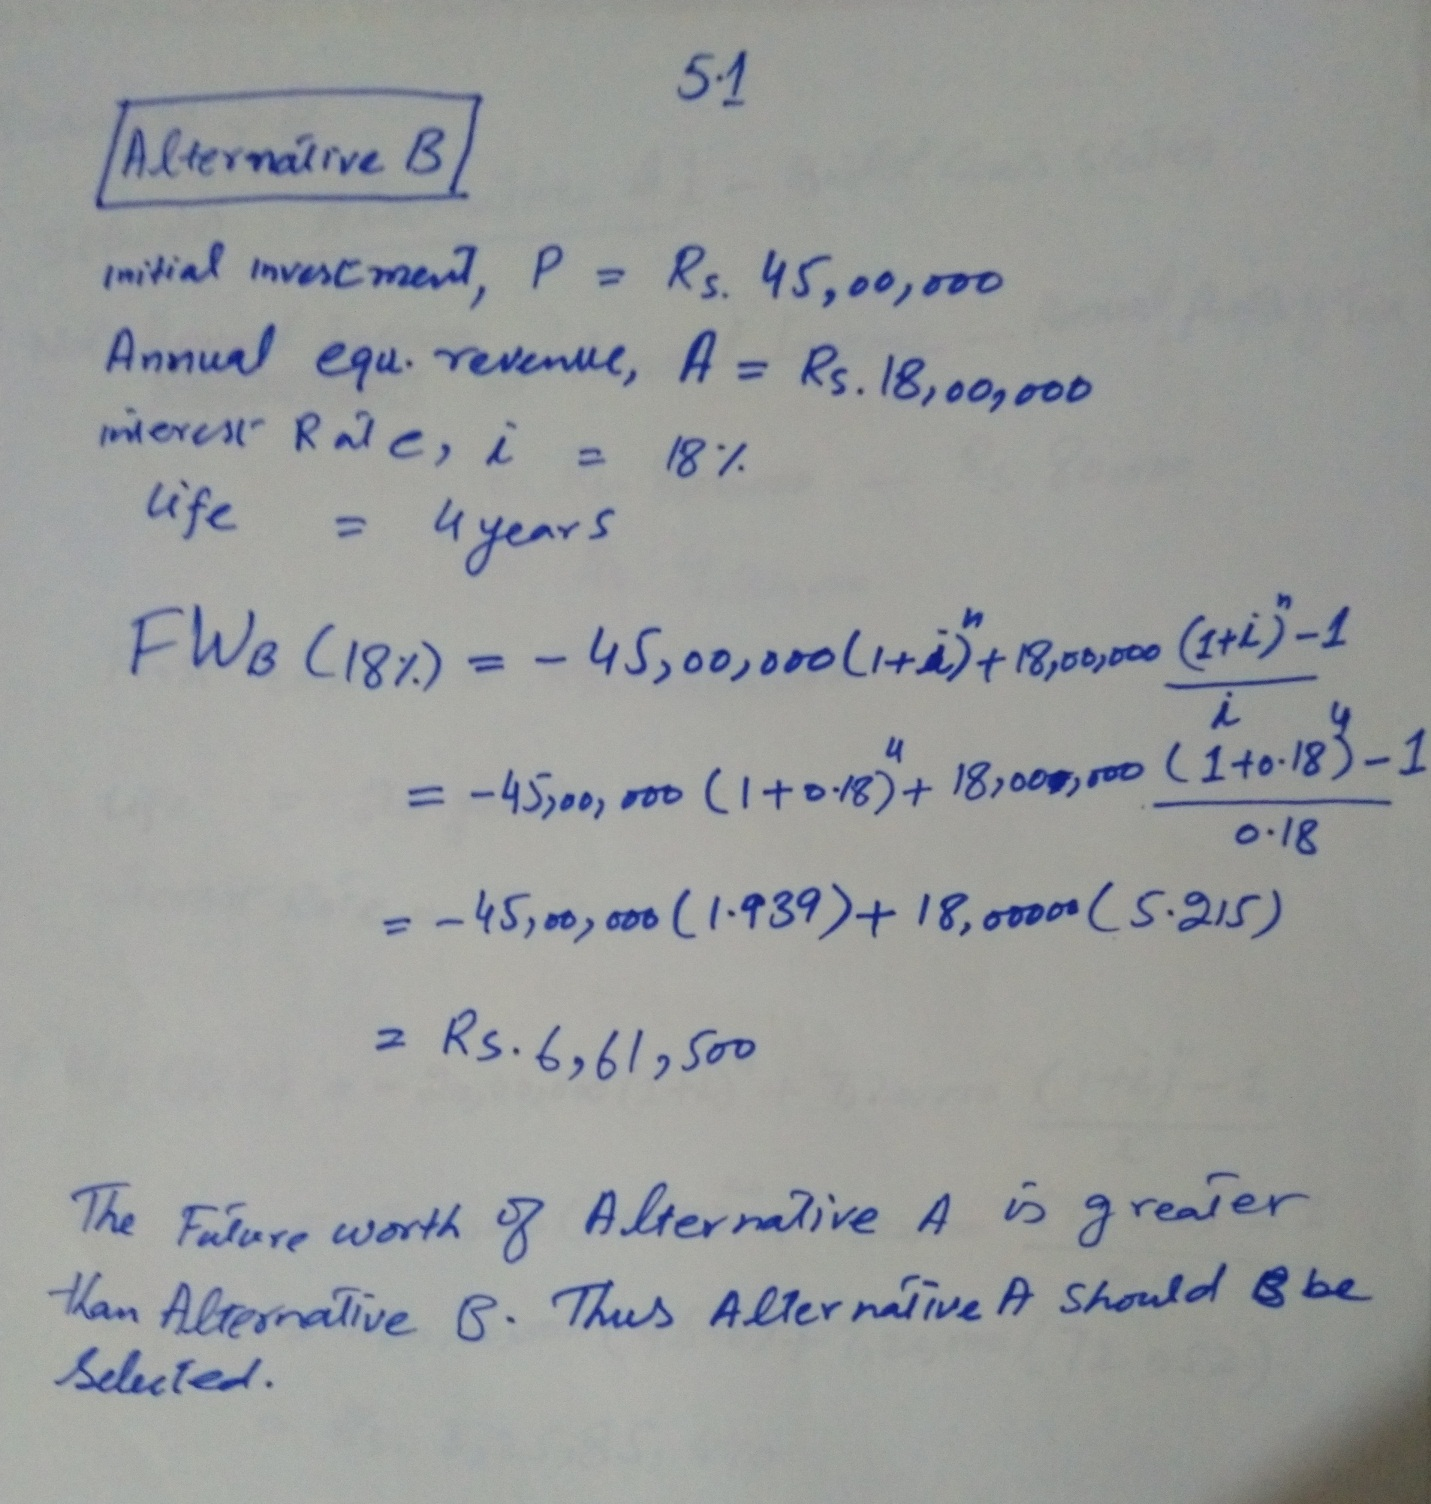 5.1
Alternative B
initial investment, P = Rs. 45,00,000
Annual equ. revenue, A = Rs. 18,00,000
interest Rate, i = 18%
life = 4 years
FWB (18%) = - 45,00,000 (1+i)^n + 18,00,000 (1+i)^n - 1 / i
= - 45,00,000 (1+0.18)^4 + 18,000,000 (1+0.18)^4 - 1 / 0.18
= - 45,00,000 (1.939) + 18,00000 (5.215)
= Rs. 6,61,500
The Future worth of Alternative A is greater
than Alternative B. Thus Alternative A should be
selected.